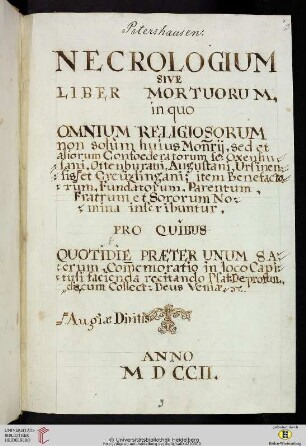 Petershausen.
NECROLOGIUM
SIVE
LIBER MORTUORUM,
in quo
OMNIUM RELIGIOSORUM
non solùm huius Monrij, sed et
aliorum Confoederatorum sc: Oxenhu-
sani, Ottenburani, Augustani, Ursinen-
sis et Creuzlingani; item Benefacto-
rum, Fundatorum, Parentum,
Fratrum et Sororum No-
mina inscribuntur.
PRO QUIBUS
QUOTIDIE PRÆTER UNUM SA-
crum, Comemoratio in loco Capi-
tuli facienda recitando Psal: De profun-
dis, cum Collect: Deus Veniæ etc.
Augiæ Divitis
ANNO
M D CCII.
3
UNIVERSITÄTS-
BIBLIOTHEK
HEIDELBERG
Universitätsbibliothek Heidelberg